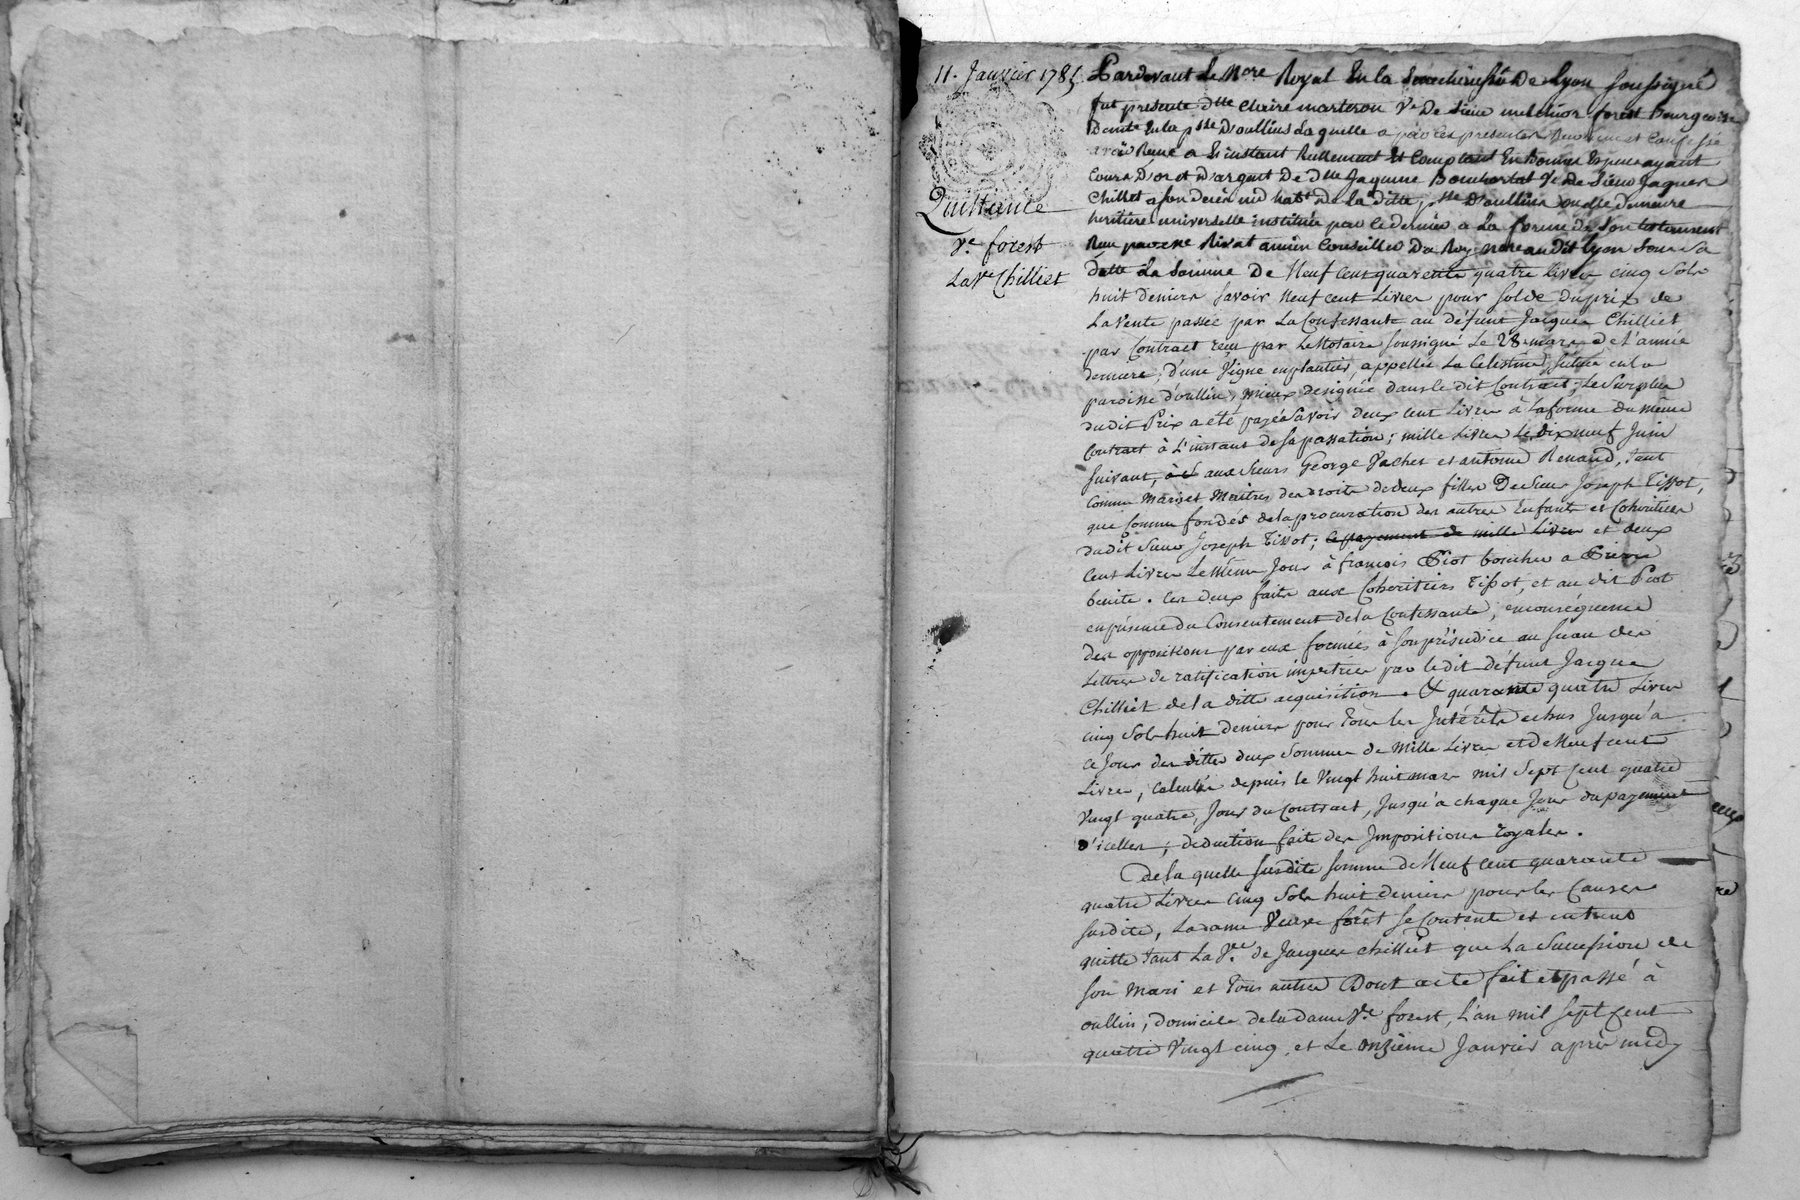 11. Janvier 1785
Quittance
Ve. forest
La Ve Chilliet
Pardevant Le Nore Royal En la Senechaussée De Lyon soussigné
fut presente dlle claire marteron Ve De sieur melchior forest Bourgeoise
demte En la psse D'oullins Laquelle a par ces presentes Reconnu et Confessé
avoir Receu a L'instant Reellement Et Comptant En bonnes Especes ayant
Cours D'or et D'argent De dlle Jaqueme Ve De Sieur Jaques
Chilliet a son deces habt De la ditte psse D'oullins ou elle demeure
heritiere universelle instituée par ce dernier a La forme De Son testament
Receu par me Rivat ancien Conseiller Du Roy nore au dit Lyon Sous Sa
datte La Somme De Neuf cent quarente quatre Livres cinq Sols
huit deniers Savoir Neuf cent Livres pour Solde du prix de
La Vente passée par La Confessante au défunt Jacques Chilliet
par Contract reçu par Le Notaire soussigné Le 28 mars de L'année
derniere, d'une Vigne appellée La Celestine, située en la
paroisse d'oullins, mieux designée dans le dit Contract; Le Surplus
du dit Prix a eté payé Savoir deux cent Livres à La forme du même
Contract à L'instant de sa passation; mille Livres Le dix neuf Juin
suivant, aux Sieurs George Vachez et antoine Renaud, tant
Comme Maris et Maitres des droits de deux filles De Sieur Joseph Tissot,
que Comme fondés de la procuration des autres Enfants et Cohéritiers
du dit Sieur Joseph Tissot; ce payement de mille Livres et deux
cent Livres Le Même Jour à françois Piot boucher a Pierre
benite. Ces deux faits aux Cohéritiers Tissot, et au dit Piot
en présence du Consentement de la Confessante, en conséquence
des oppositions par eux formées à son préjudice au Sceau des
Lettres de ratification impetrées par le dit défunt Jacques
Chilliet de la ditte acquisition. Et quarante quatre Livres
cinq Sols huit deniers pour Tous les Intérêts echus Jusqu'a
ce Jour des dittes deux Sommes de Mille Livres et de Neuf cent
Livres, calculés depuis le Vingt huit mars mil Sept Cent quatre
Vingt quatre, Jour du Contract, Jusqu'a chaque Jour du payement
d'icelles; déduction faite des Impositions royales.
De la quelle susdite somme de Neuf cent quarante
quatre Livres Cinq Sols huit deniers pour les Causes
susdites, La dame Veuve forêt se Contente et en tient
quitte tant La Ve. de Jacques chilliet que La Succession de
son Mari et tous autres Dont acte fait et passé à
oullin, domicile de la dame Ve forest, L'an mil Sept Cent
quatre Vingt cinq et Le onzieme Janvier après midy